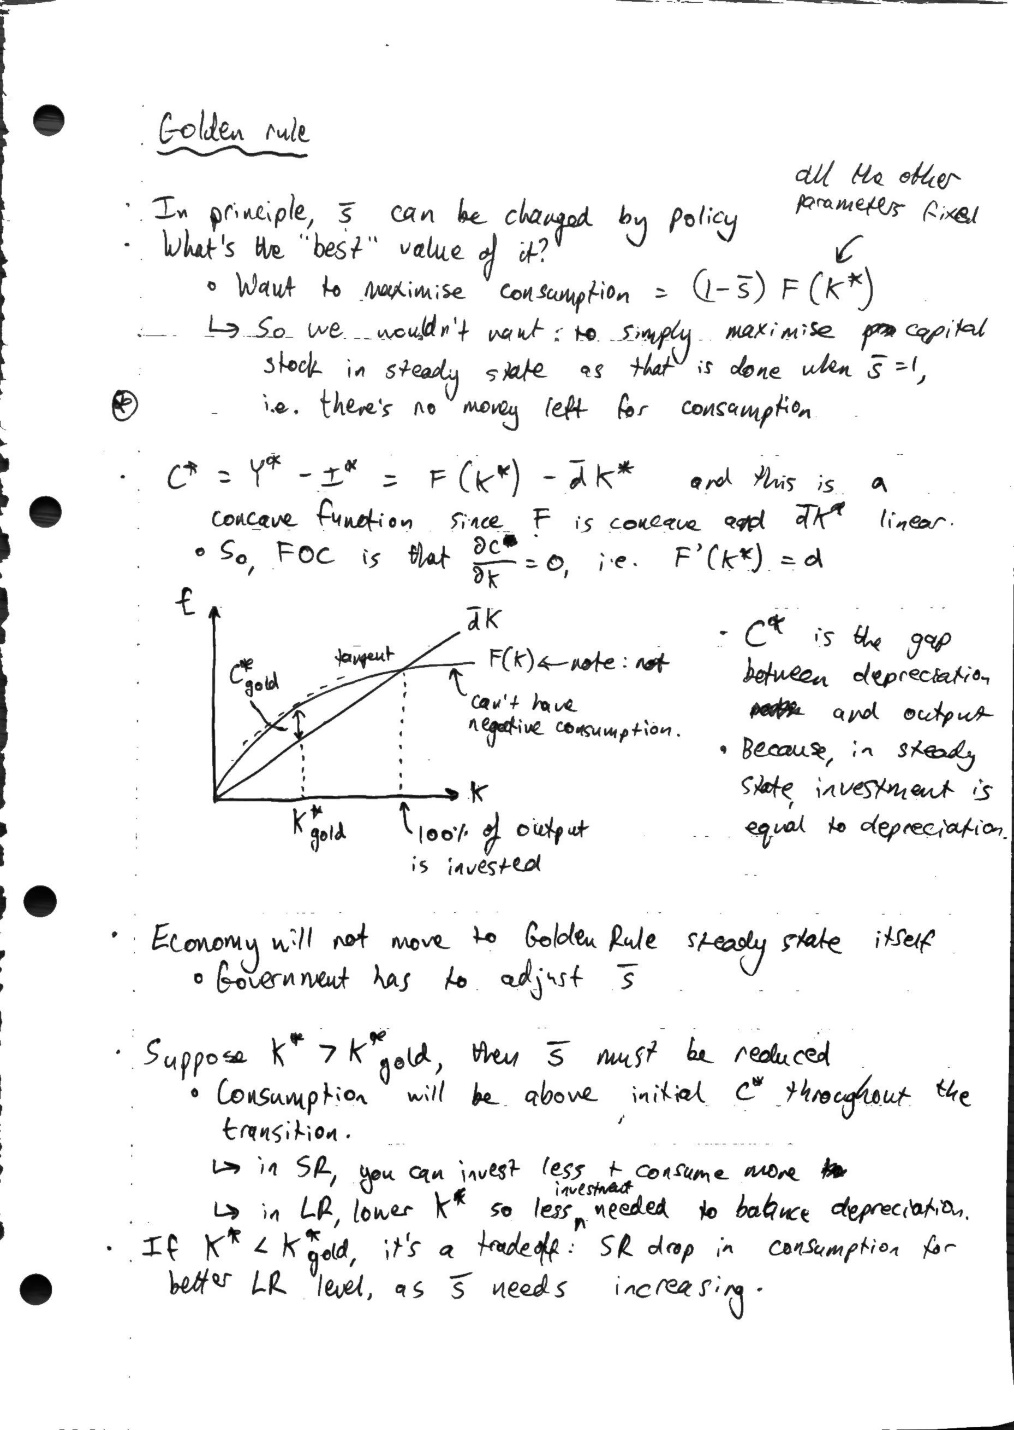 Golden rule
all the other
parameters fixed
· In principle, s̄ can be changed by policy
· What's the "best" value of it?
∘ Want to maximise consumption = (1-s̄) F(K*)
↳ So we wouldn't want: to simply maximise capital
stock in steady state as that is done when s̄=1,
i.e. there's no money left for consumption
· C* = Y* - I* = F(K*) - d̄K* and this is a
concave function since F is concave and d̄K* linear.
∘ So, FOC is that ∂C*/∂K = 0, i.e. F'(K*) = d
£
d̄K
tangent
F(K) ← note: not
C*gold
can't have
negative consumption.
K
K*gold
100% of output
is invested
· C* is the gap
between depreciation
and output
· Because, in steady
state, investment is
equal to depreciation.
· Economy will not move to Golden Rule steady state itself
∘ Government has to adjust s̄
· Suppose K* > K*gold, then s̄ must be reduced
∘ Consumption will be above initial C* throughout the
transition.
↳ in SR, you can invest less + consume more
↳ in LR, lower K* so less investment needed to balance depreciation.
· If K* < K*gold, it's a tradeoff: SR drop in consumption for
better LR level, as s̄ needs increasing.